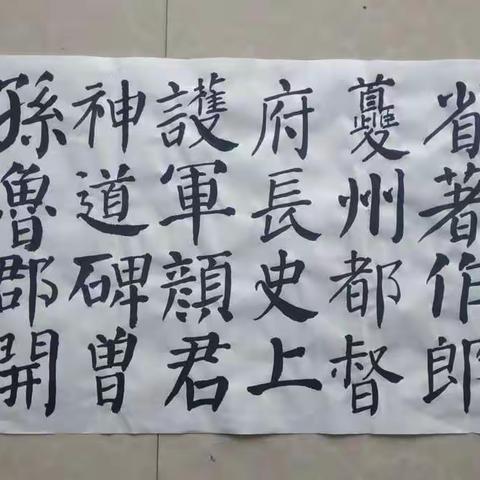 省著作郎
夔州都督
府長史上
護軍顏君
神道碑曽
孫魯郡開